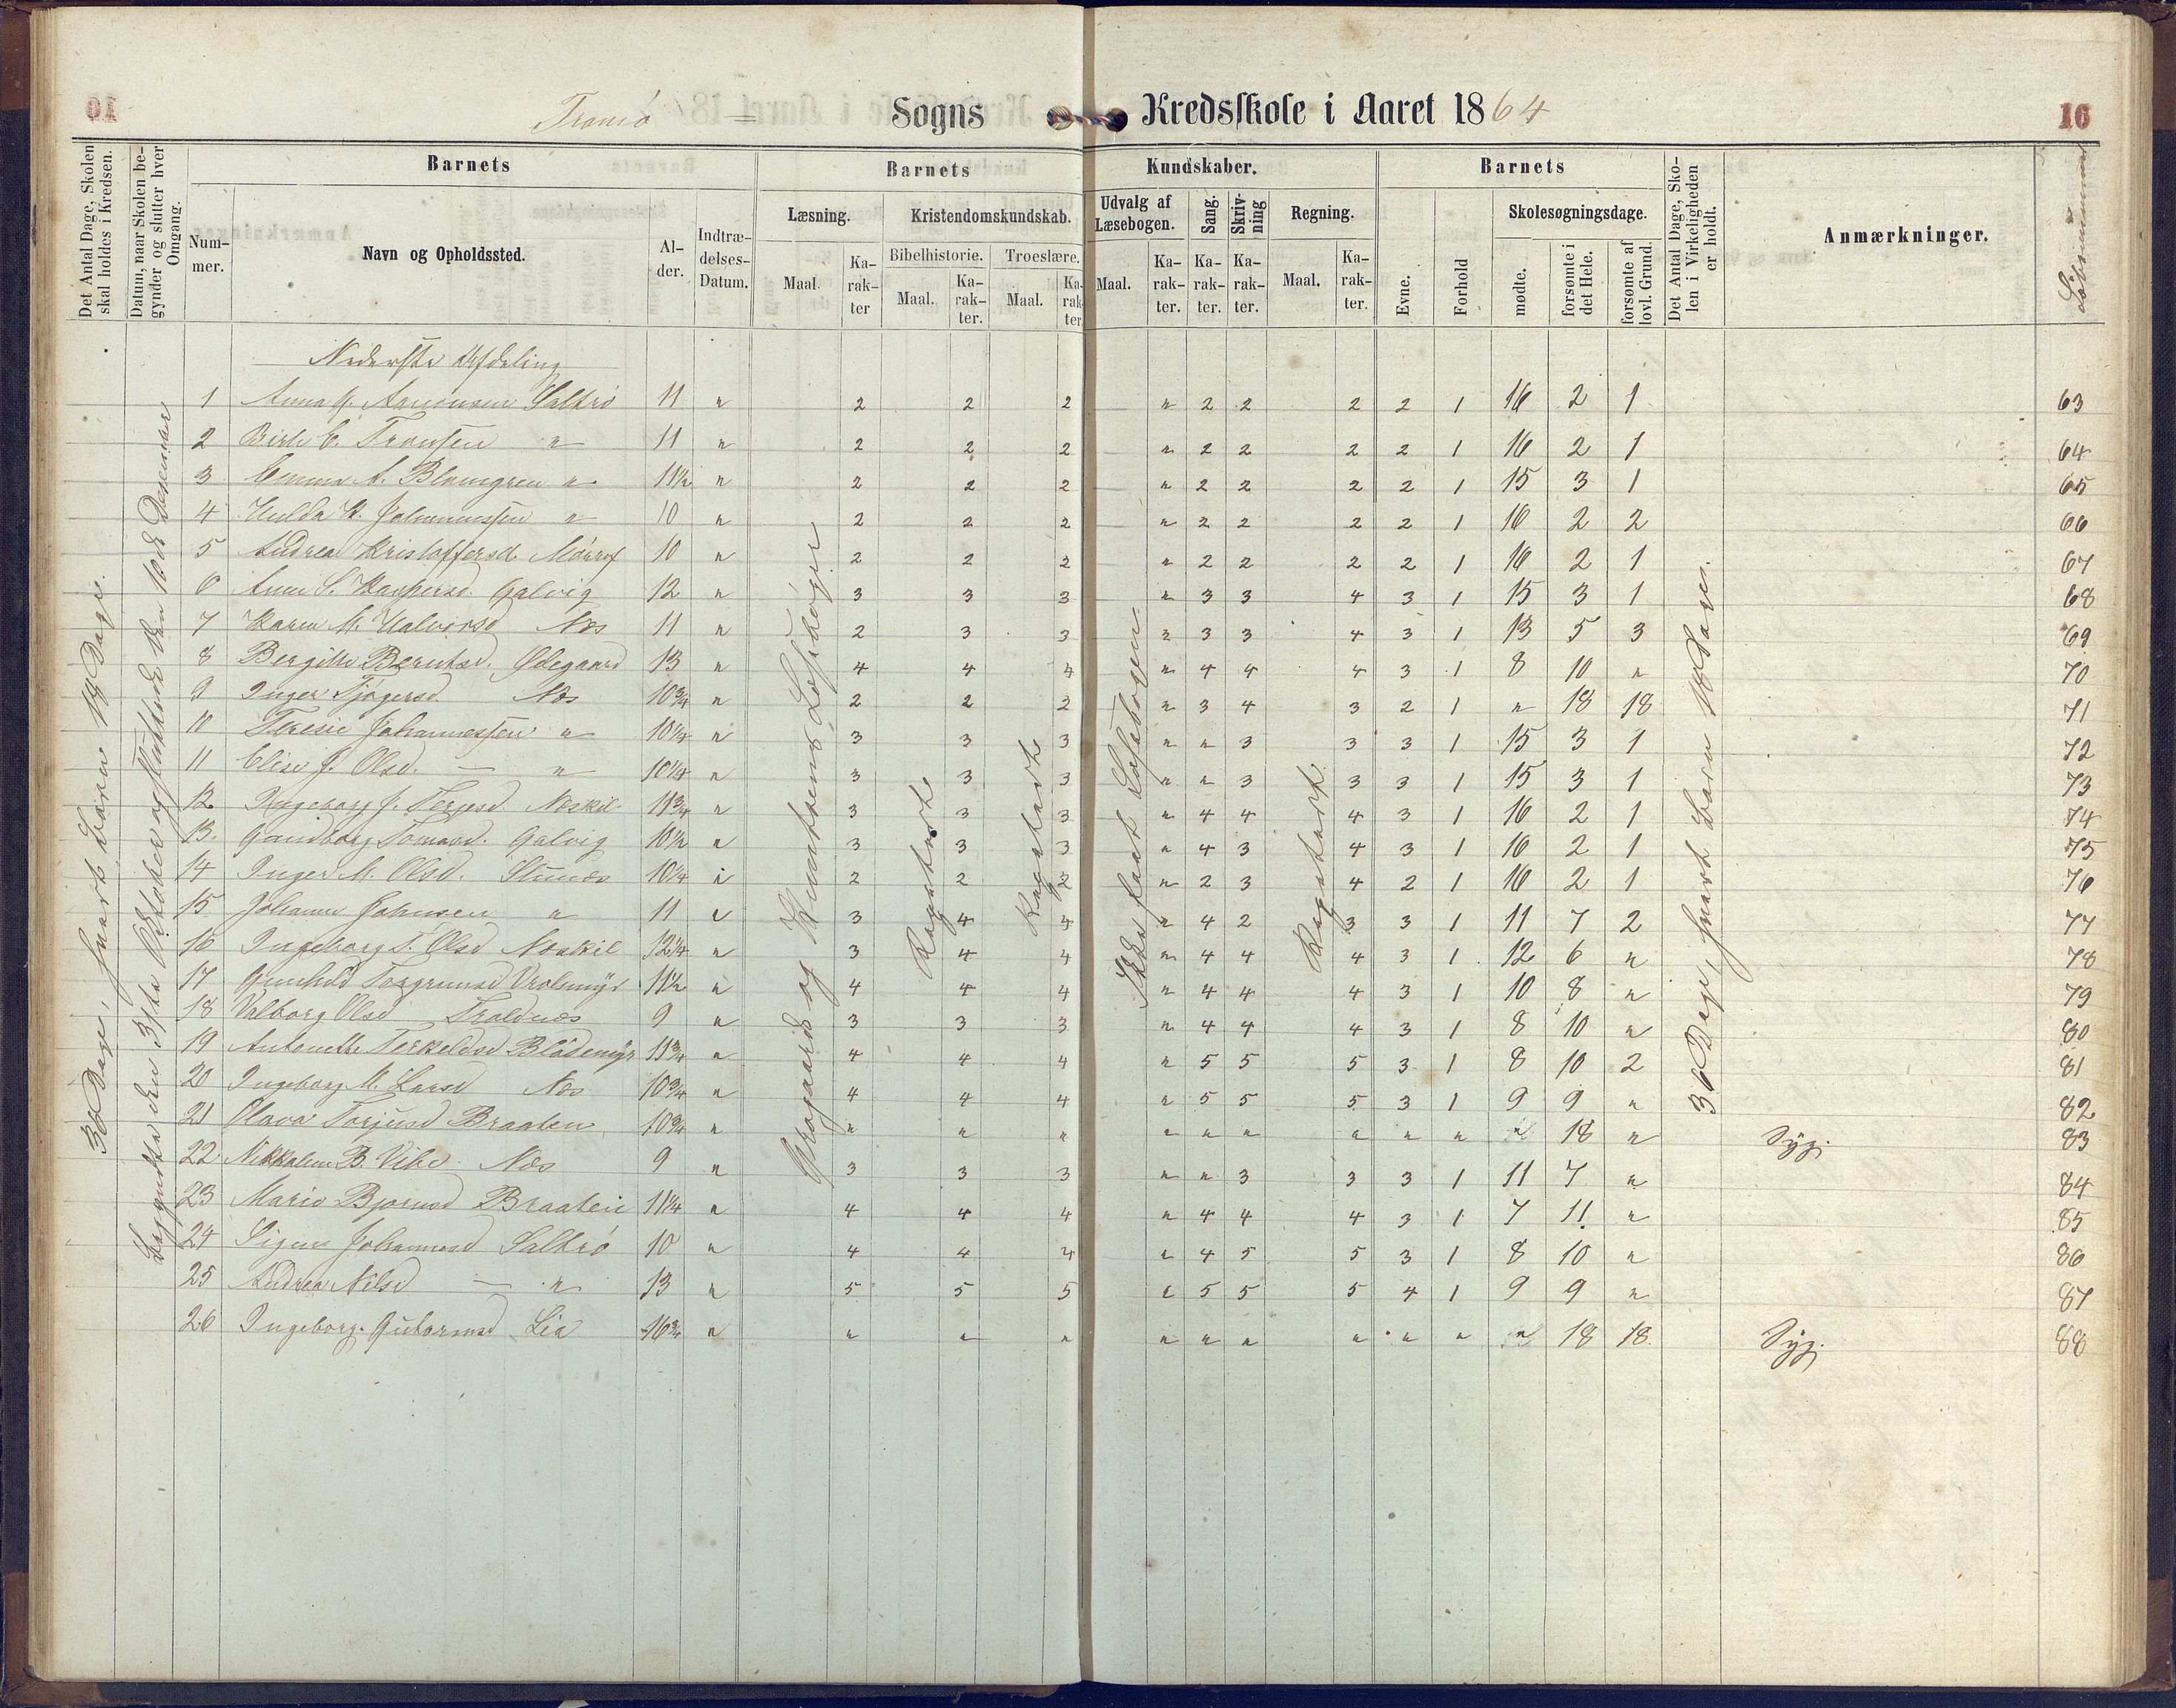 Tromö Sogns Kredsskole i Aaret 1864
16
Det Antal Dage, Skolen skal holdes i Kredsen.
Datum, naar Skolen begynder og slutter hver Omgang.
Barnets
Nummer.
Navn og Opholdssted.
Alder.
Indtrædelses-Datum.
Barnets Kundskaber.
Læsning.
Maal.
Karakter
Kristendomskundskab.
Bibelhistorie.
Maal.
Karakter.
Troeslære.
Maal.
Karakter
Udvalg af Læsebogen.
Maal.
Karakter.
Sang.
Karakter.
Skrivning
Karakter.
Regning.
Maal.
Karakter.
Barnets
Evne.
Forhold
Skolesøgningsdage.
mødte.
forsømte i det Hele.
forsømte af lovl. Grund.
Det Antal Dage, Skolen i Virkeligheden er holdt.
Anmærkninger.
Löbenummer
36 Dage, hvert Barn 18 Dage.
Begyndte den 31te Oktober og sluttede den 10de Decemner
Nederste Afdeling
1 Anna G. Aanonsen Saltrö 11 " 2 2 2 " 2 2 2 2 1 16 2 1 63
2 Birte C. Tronsen " 11 " 2 2 2 " 2 2 2 2 1 16 2 1 64
3 Emma A. Blomgren " 11½ " 2 2 2 " 2 2 2 2 1 15 3 1 65
4 Hulda K. Johannessen " 10 " 2 2 2 " 2 2 2 2 1 16 2 2 66
5 Andrea Kristoffersd. 10 " 2 2 2 " 2 2 2 2 1 16 2 1 67
6 Anne S. Kaspersd. Galvig 12 " 3 3 3 " 3 3 4 3 1 15 3 1 68
7 Karen M. Halvorsd Næs 11 " 2 3 3 " 3 3 4 3 1 13 5 3 69
8 Bergitte Berntsd. Ødegaard 13 " 4 4 4 " 4 4 4 3 1 8 10 " 70
9 Inger Tjögersd. Næs 10¾ " 2 2 2 " 3 4 3 2 1 " 18 18 71
10 Teresie Johannessen " 10¼ " 3 3 3 " " 3 3 3 1 15 3 1 72
11 Elise J. Olsd. — " 10¼ " 3 3 3 " " 3 3 3 1 15 3 1 73
12 Ingeborg J. Terjesd. Næskil 11¾ " 3 3 3 " 4 4 4 3 1 16 2 1 74
13. Gundborg Tomasd. Galvig 10½ " 3 3 3 " 4 3 4 3 1 16 2 1 75
14 Inger M. Olsd. 10¼ " 2 2 2 " 2 3 4 2 1 16 2 1 76
15 Johanne Johnsen " 11 " 3 4 4 " 4 2 3 3 1 11 7 2 77
16 Ingeborg T. Olsd Næskil 12¼ " 3 4 4 " 4 4 4 3 1 12 6 " 78
17 Gunhild Torgrimsd Vrolsmyr 11½ " 4 4 4 " 4 4 4 3 1 10 8 " 79
18 Valborg Olsd Troldnæs 9 " 3 3 3 " 4 4 4 3 1 8 10 " 80
19 Antonette Terkelsd Blödemyr 11¾ " 4 4 4 " 5 5 5 3 1 8 10 2 81
20 Ingeborg M. Larsd Næs 10¾ " 4 4 4 " 5 5 5 3 1 9 9 " 82
21 Olava Torjusd Braaten 10¾ " " " " " " " " " " " 18 " Syg. 83
22 Nikkoline B. Vibe Næs 9 " 3 3 3 " " 3 3 3 1 11 7 " 84
23 Marie Bjornsd Braaten 11¼ " 4 4 4 " 4 4 4 3 1 7 11 " 85
24 Signe Johannesd Saltrö 10 " 4 4 4 " 4 5 5 3 1 8 10 " 86
25 Andrea Nilsd — " 13 " 5 5 5 " 5 5 5 4 1 9 9 " 87
26 Ingeborg Gutormsd Lia 10¾ " " " " " " " " " " " 18 18 Syg. 88
Læsebøger
Regnskab
Ikke havt Læsebogen
36 Dage, hvert Barn 18 Dage.